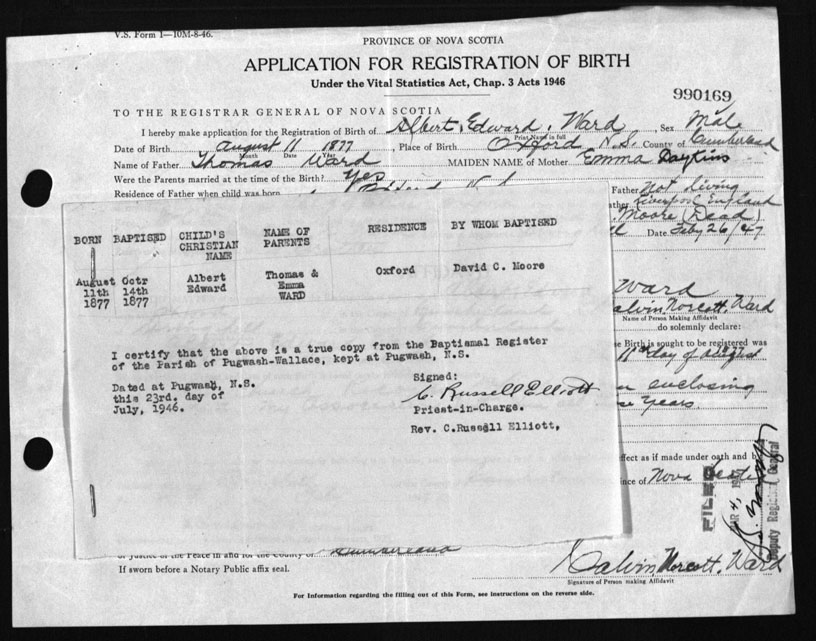 V.S. Form 1—10M-8-46.
PROVINCE OF NOVA SCOTIA
APPLICATION FOR REGISTRATION OF BIRTH
Under the Vital Statistics Act, Chap. 3 Acts 1946
990169
TO THE REGISTRAR GENERAL OF NOVA SCOTIA
I hereby make application for the Registration of Birth of Albert Edward Ward, Sex Male
Print Name in full
Date of Birth August 11 1877, Place of Birth Oxford N.S. County of Cumberland
Month Date Year
Name of Father Thomas Ward MAIDEN NAME of Mother Emma Daykins
Were the Parents married at the time of the Birth? Yes
Father Not living
Residence of Father when child was born
Liverpool England
Moore (Dead)
Date Feby 26/47
BORN BAPTISED CHILD'S CHRISTIAN NAME NAME OF PARENTS RESIDENCE BY WHOM BAPTISED
August 11th 1877 Octr 14th 1877 Albert Edward Thomas & Emma WARD Oxford David C. Moore
Ward
Calvin Norcott Ward
Name of Person Making Affidavit
do solemnly declare:
Birth is sought to be registered was
11th day of August
I certify that the above is a true copy from the Baptismal Register
of the Parish of Pugwash-Wallace, kept at Pugwash, N.S.
enclosing
years
Dated at Pugwash, N.S.
this 23rd. day of
July, 1946.
Signed:
C. Russell Elliott
Priest-in-Charge.
Rev. C.Russell Elliott,
effect as if made under oath and b
ince of Nova Scotia
FILED
Deputy Registrar General
of Justice of the Peace in and for the County of Cumberland
If sworn before a Notary Public affix seal.
Calvin Norcott Ward
Signature of Person making Affidavit
For Information regarding the filling out of this Form, see instructions on the reverse side.